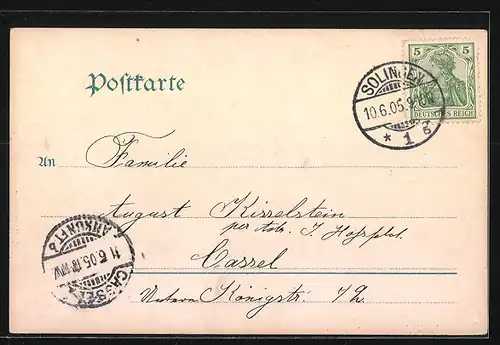 Postkarte
5 5
DEUTSCHES REICH
SOLINGEN
10.6.05.
* 1 g
An Familie
August Kisselstein
per Adr. J.
Cassel
ANKUNFT
11.6.05.
CASSEL
Untere Königstr.